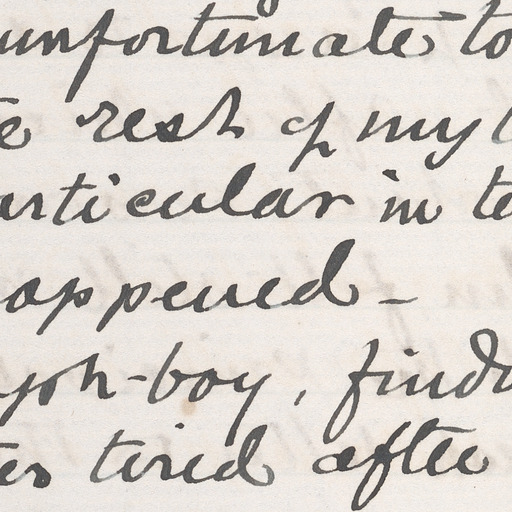 unfortunate to
e rest of my
articular in te
appened -
-boy, findi
ter tired after